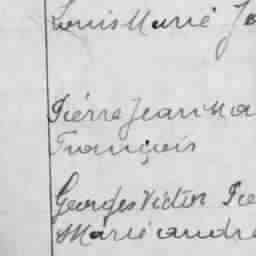 Louis Marie Jo
Pierre Jean Ma
François
Georges Victor Pie
Marie andre